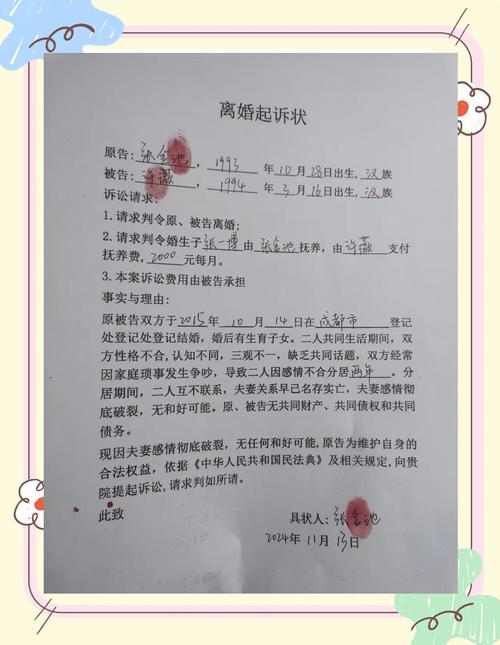 离婚起诉状
原告:张金池,1993 年10月28日出生,汉族
被告:许薇,1994 年3月16日出生,汉族
诉讼请求:
1. 请求判令原、被告离婚;
2. 请求判令婚生子张一博由张金池抚养,由许薇支付
抚养费,2000元每月。
3. 本案诉讼费用由被告承担
事实与理由:
原被告双方于2015年10月14日在成都市登记
处登记处登记结婚,婚后有生育子女。二人共同生活期间,双
方性格不合,认知不同,三观不一,缺乏共同话题,双方经常
因家庭琐事发生争吵,导致二人因感情不合分居两年。分
居期间,二人互不联系,夫妻关系早已名存实亡,夫妻感情彻
底破裂,无和好可能。原、被告无共同财产、共同债权和共同
债务。
现因夫妻感情彻底破裂,无任何和好可能,原告为维护自身的
合法权益,依据《中华人民共和国民法典》及相关规定,向贵
院提起诉讼,请求判如所请。
此致
具状人:张金池
2024年11月13日